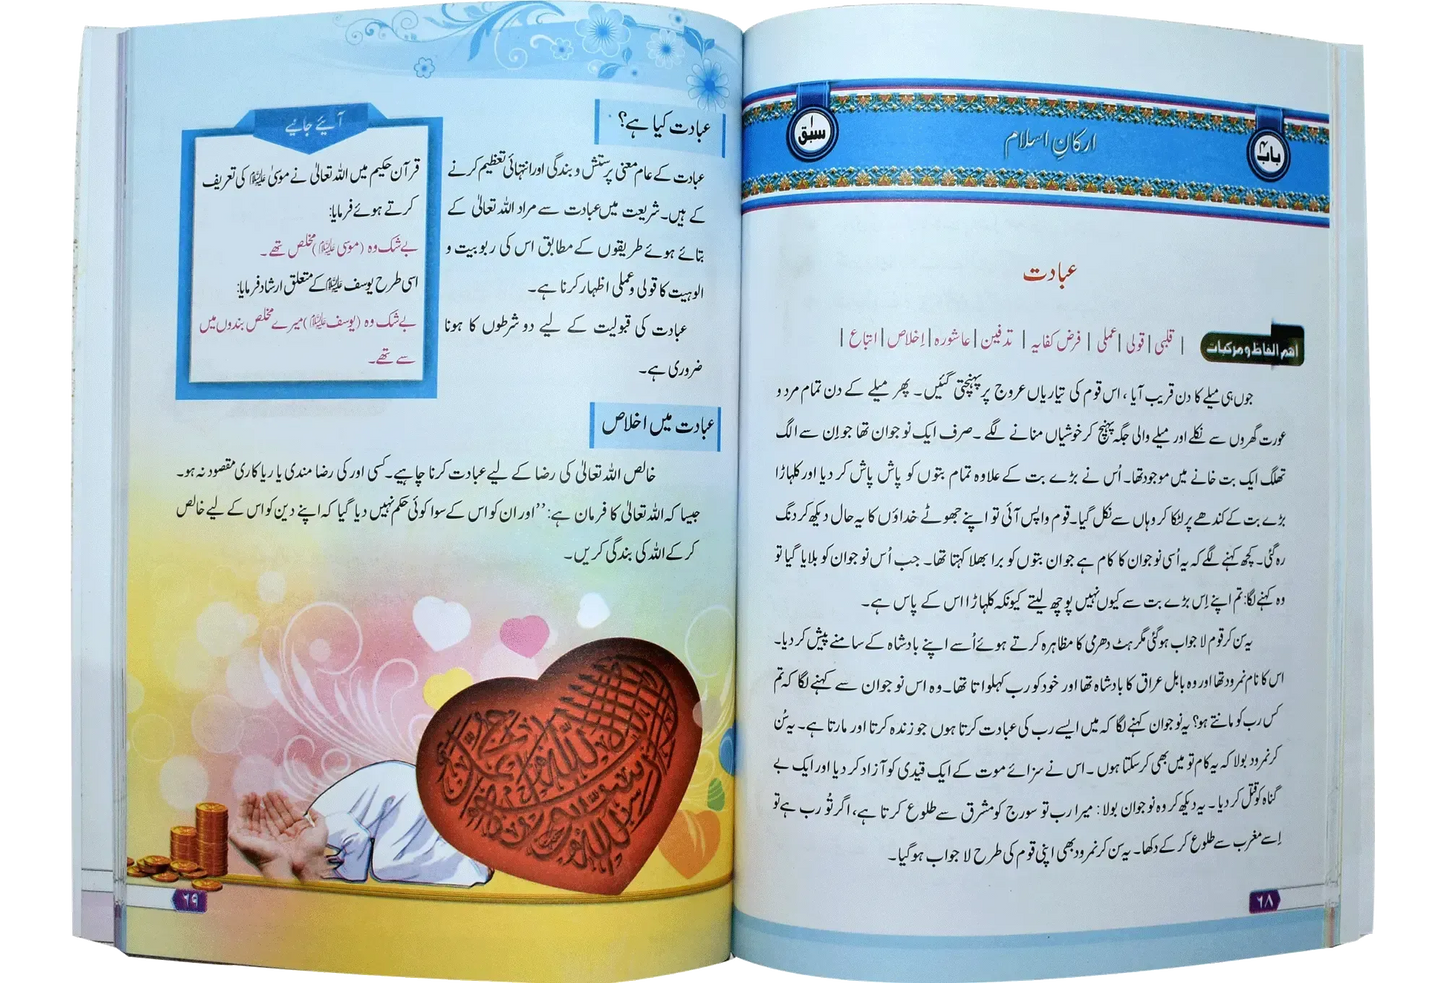 باب ۴
ارکانِ اسلام
سبق ۱
عبادت
اہم الفاظ و مرکبات
| قلبی | قولی | عملی | فرض کفایہ | تدفین | عاشورہ | اخلاص | اتباع |
جوں ہی میلے کا دن قریب آیا، اس قوم کی تیاریاں عروج پر پہنچتی گئیں۔ پھر میلے کے دن تمام مرد و
عورت گھروں سے نکلے اور میلے والی جگہ پہنچ کر خوشیاں منانے لگے۔ صرف ایک نوجوان تھا جو ان سے الگ
تھلگ ایک بت خانے میں موجود تھا۔ اُس نے بڑے بت کے علاوہ تمام بتوں کو پاش پاش کر دیا اور کلہاڑا
بڑے بت کے کندھے پر لٹکا کر وہاں سے نکل گیا۔ قوم واپس آئی تو اپنے جھوٹے خداؤں کا یہ حال دیکھ کر دنگ
رہ گئی۔ کچھ کہنے لگے کہ یہ اُسی نوجوان کا کام ہے جو ان بتوں کو برا بھلا کہتا تھا۔ جب اُس نوجوان کو بلایا گیا تو
وہ کہنے لگا: تم اپنے اِس بڑے بت سے کیوں نہیں پوچھ لیتے کیونکہ کلہاڑا اس کے پاس ہے۔
یہ سن کر قوم لا جواب ہو گئی مگر ہٹ دھرمی کا مظاہرہ کرتے ہوئے اُسے اپنے بادشاہ کے سامنے پیش کر دیا۔
اس کا نام نمرود تھا اور وہ بابل عراق کا بادشاہ تھا اور خود کو رب کہلواتا تھا۔ وہ اس نوجوان سے کہنے لگا کہ تم
کس رب کو مانتے ہو؟ یہ نوجوان کہنے لگا کہ میں ایسے رب کی عبادت کرتا ہوں جو زندہ کرتا اور مارتا ہے۔ یہ سُن
کر نمرود بولا کہ یہ کام تو میں بھی کر سکتا ہوں۔ اس نے سزائے موت کے ایک قیدی کو آزاد کر دیا اور ایک بے
گناہ کو قتل کر دیا۔ یہ دیکھ کر وہ نوجوان بولا: میرا رب تو سورج کو مشرق سے طلوع کرتا ہے، اگر تُو رب ہے تو
اِسے مغرب سے طلوع کر کے دکھا۔ یہ سن کر نمرود بھی اپنی قوم کی طرح لا جواب ہو گیا۔
۶۸
عبادت کیا ہے؟
عبادت کے عام معنی پرستش و بندگی اور انتہائی تعظیم کرنے
کے ہیں۔ شریعت میں عبادت سے مراد اللہ تعالیٰ کے
بتائے ہوئے طریقوں کے مطابق اس کی ربوبیت و
الوہیت کا قولی و عملی اظہار کرنا ہے۔
عبادت کی قبولیت کے لیے دو شرطوں کا ہونا
ضروری ہے۔
آئیے جانیے
قرآن حکیم میں اللہ تعالیٰ نے موسیٰ علیہ السلام کی تعریف
کرتے ہوئے فرمایا:
بے شک وہ (موسیٰ علیہ السلام) مخلص تھے۔
اسی طرح یوسف علیہ السلام کے متعلق ارشاد فرمایا:
بے شک وہ (یوسف علیہ السلام) میرے مخلص بندوں میں
سے تھے۔
عبادت میں اخلاص
خالص اللہ تعالیٰ کی رضا کے لیے عبادت کرنا چاہیے۔ کسی اور کی رضا مندی یا ریاکاری مقصود نہ ہو۔
جیسا کہ اللہ تعالیٰ کا فرمان ہے: ’’اور ان کو اس کے سوا کوئی حکم نہیں دیا گیا کہ اپنے دین کو اس کے لیے خالص
کر کے اللہ کی بندگی کریں۔
۶۹